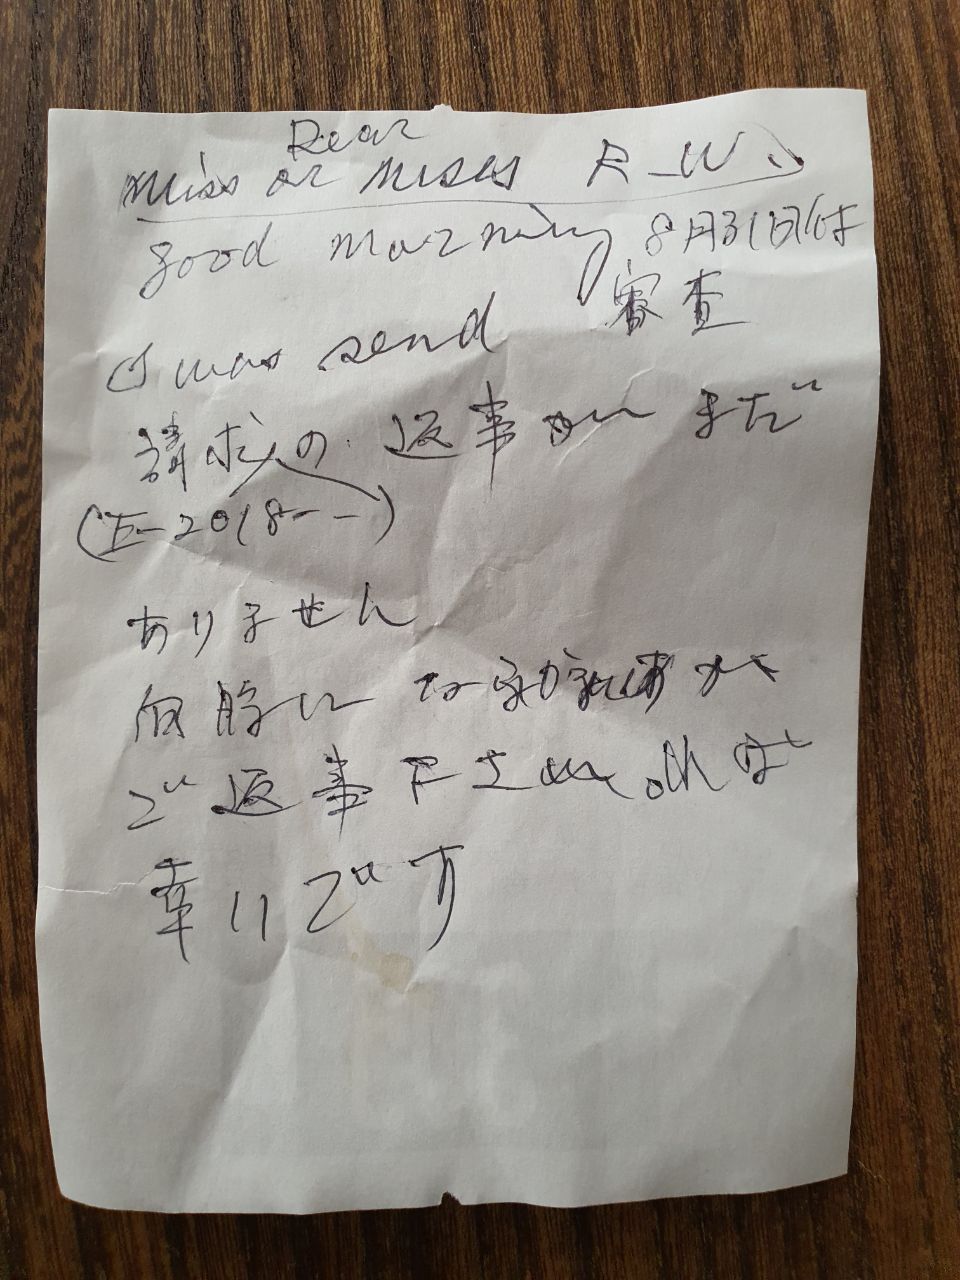 Dear
Miss or Mises R-W.
good morning 8月31日付
I was send 審査
請求の返事がまだ
(E-2018--)
ありません
何時に
ご返事下されば
幸いです